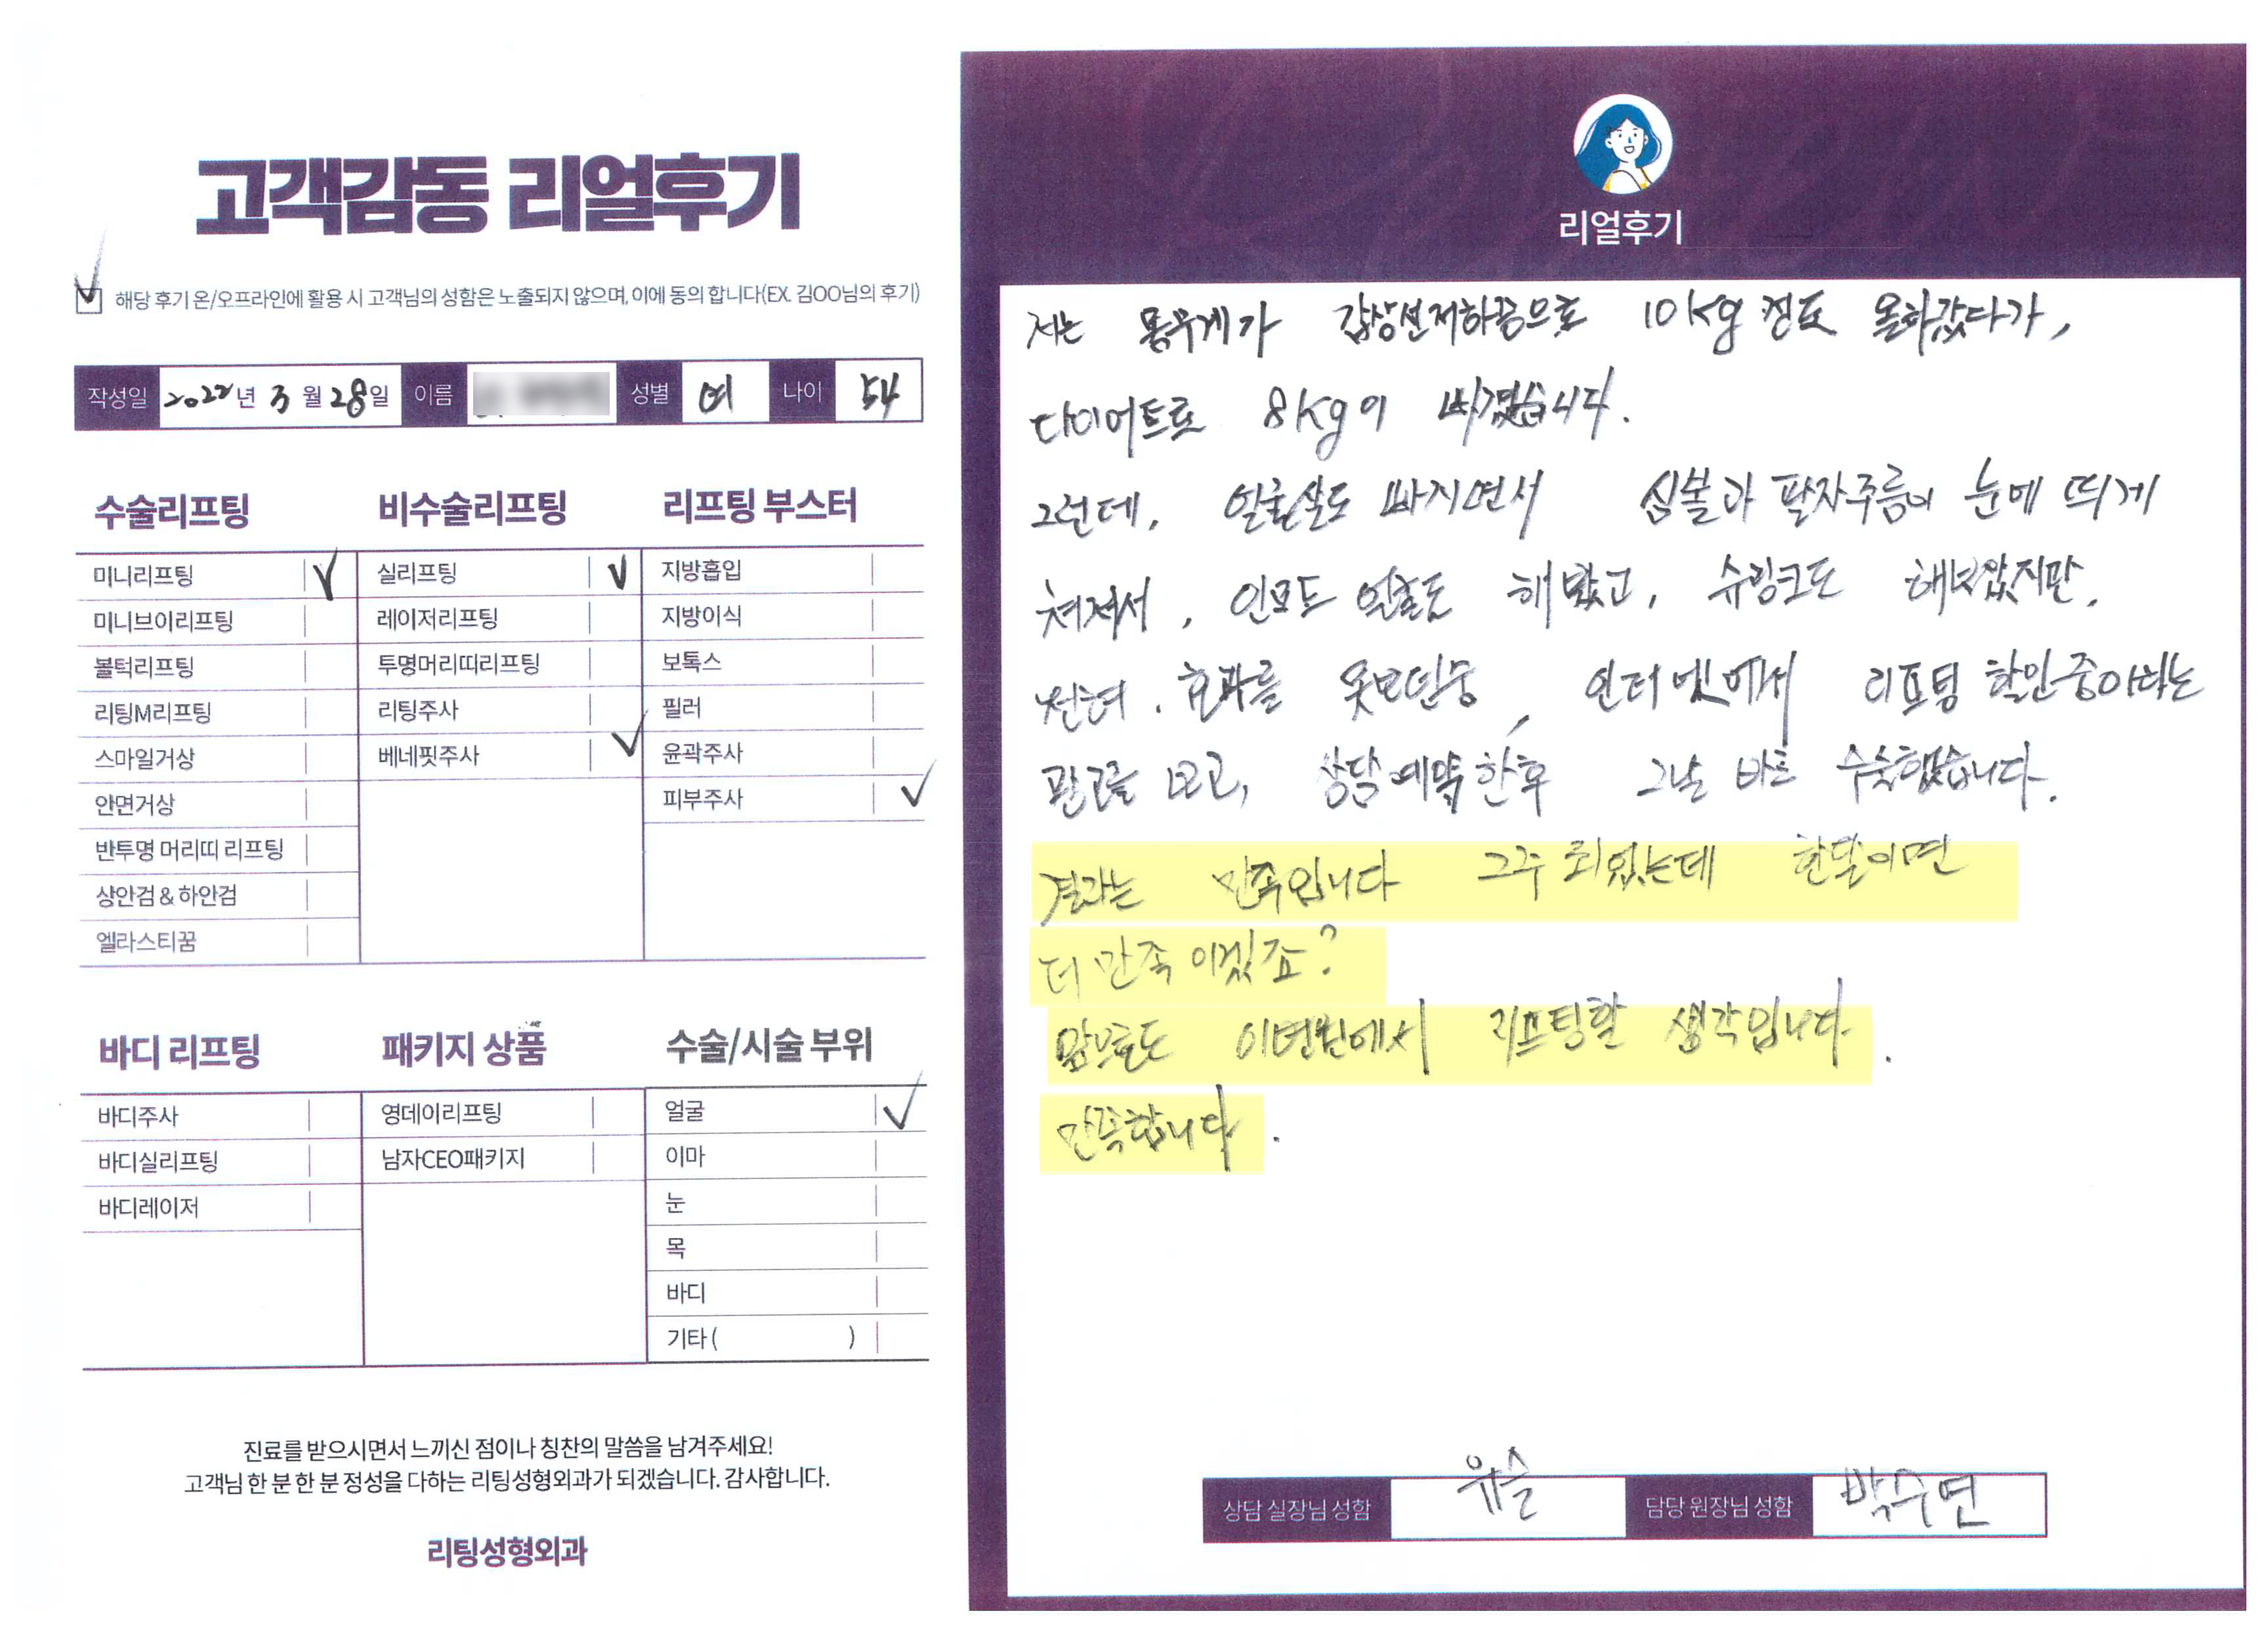 고객감동 리얼후기
해당 후기 온/오프라인에 활용 시 고객님의 성함은 노출되지 않으며, 이에 동의 합니다(EX. 김OO님의 후기)
작성일 2022년 3월 28일 이름 성별 여 나이 54
수술리프팅
미니리프팅
미니브이리프팅
볼턱리프팅
리팅M리프팅
스마일거상
안면거상
반투명 머리띠 리프팅
상안검 & 하안검
엘라스티꿈
비수술리프팅
실리프팅
레이저리프팅
투명머리띠리프팅
리팅주사
베네핏주사
리프팅 부스터
지방흡입
지방이식
보톡스
필러
윤곽주사
피부주사
바디 리프팅
바디주사
바디실리프팅
바디레이저
패키지 상품
영데이리프팅
남자CEO패키지
수술/시술 부위
얼굴
이마
눈
목
바디
기타 ( )
진료를 받으시면서 느끼신 점이나 칭찬의 말씀을 남겨주세요!
고객님 한 분 한 분 정성을 다하는 리팅성형외과가 되겠습니다. 감사합니다.
리팅성형외과
리얼후기
저는 몸무게가 갑상선저하증으로 10kg 정도 올라갔다가,
다이어트로 8kg이 빠졌습니다.
그런데, 얼굴살도 빠지면서 심술과 팔자주름이 눈에 띄게
쳐져서, 인모드 얼굴도 해봤고, 슈링크도 해보았지만,
전혀. 효과를 못보던중, 인터넷에서 리프팅 할인중이라는
광고를 보고, 상담예약한후 그날 바로 수술했습니다.
결과는 만족입니다 2주 되었는데 한달이면
더 만족 이겠죠?
앞으로도 이병원에서 리프팅할 생각입니다.
만족합니다.
상담 실장님 성함 유슬 담당 원장님 성함 박수연